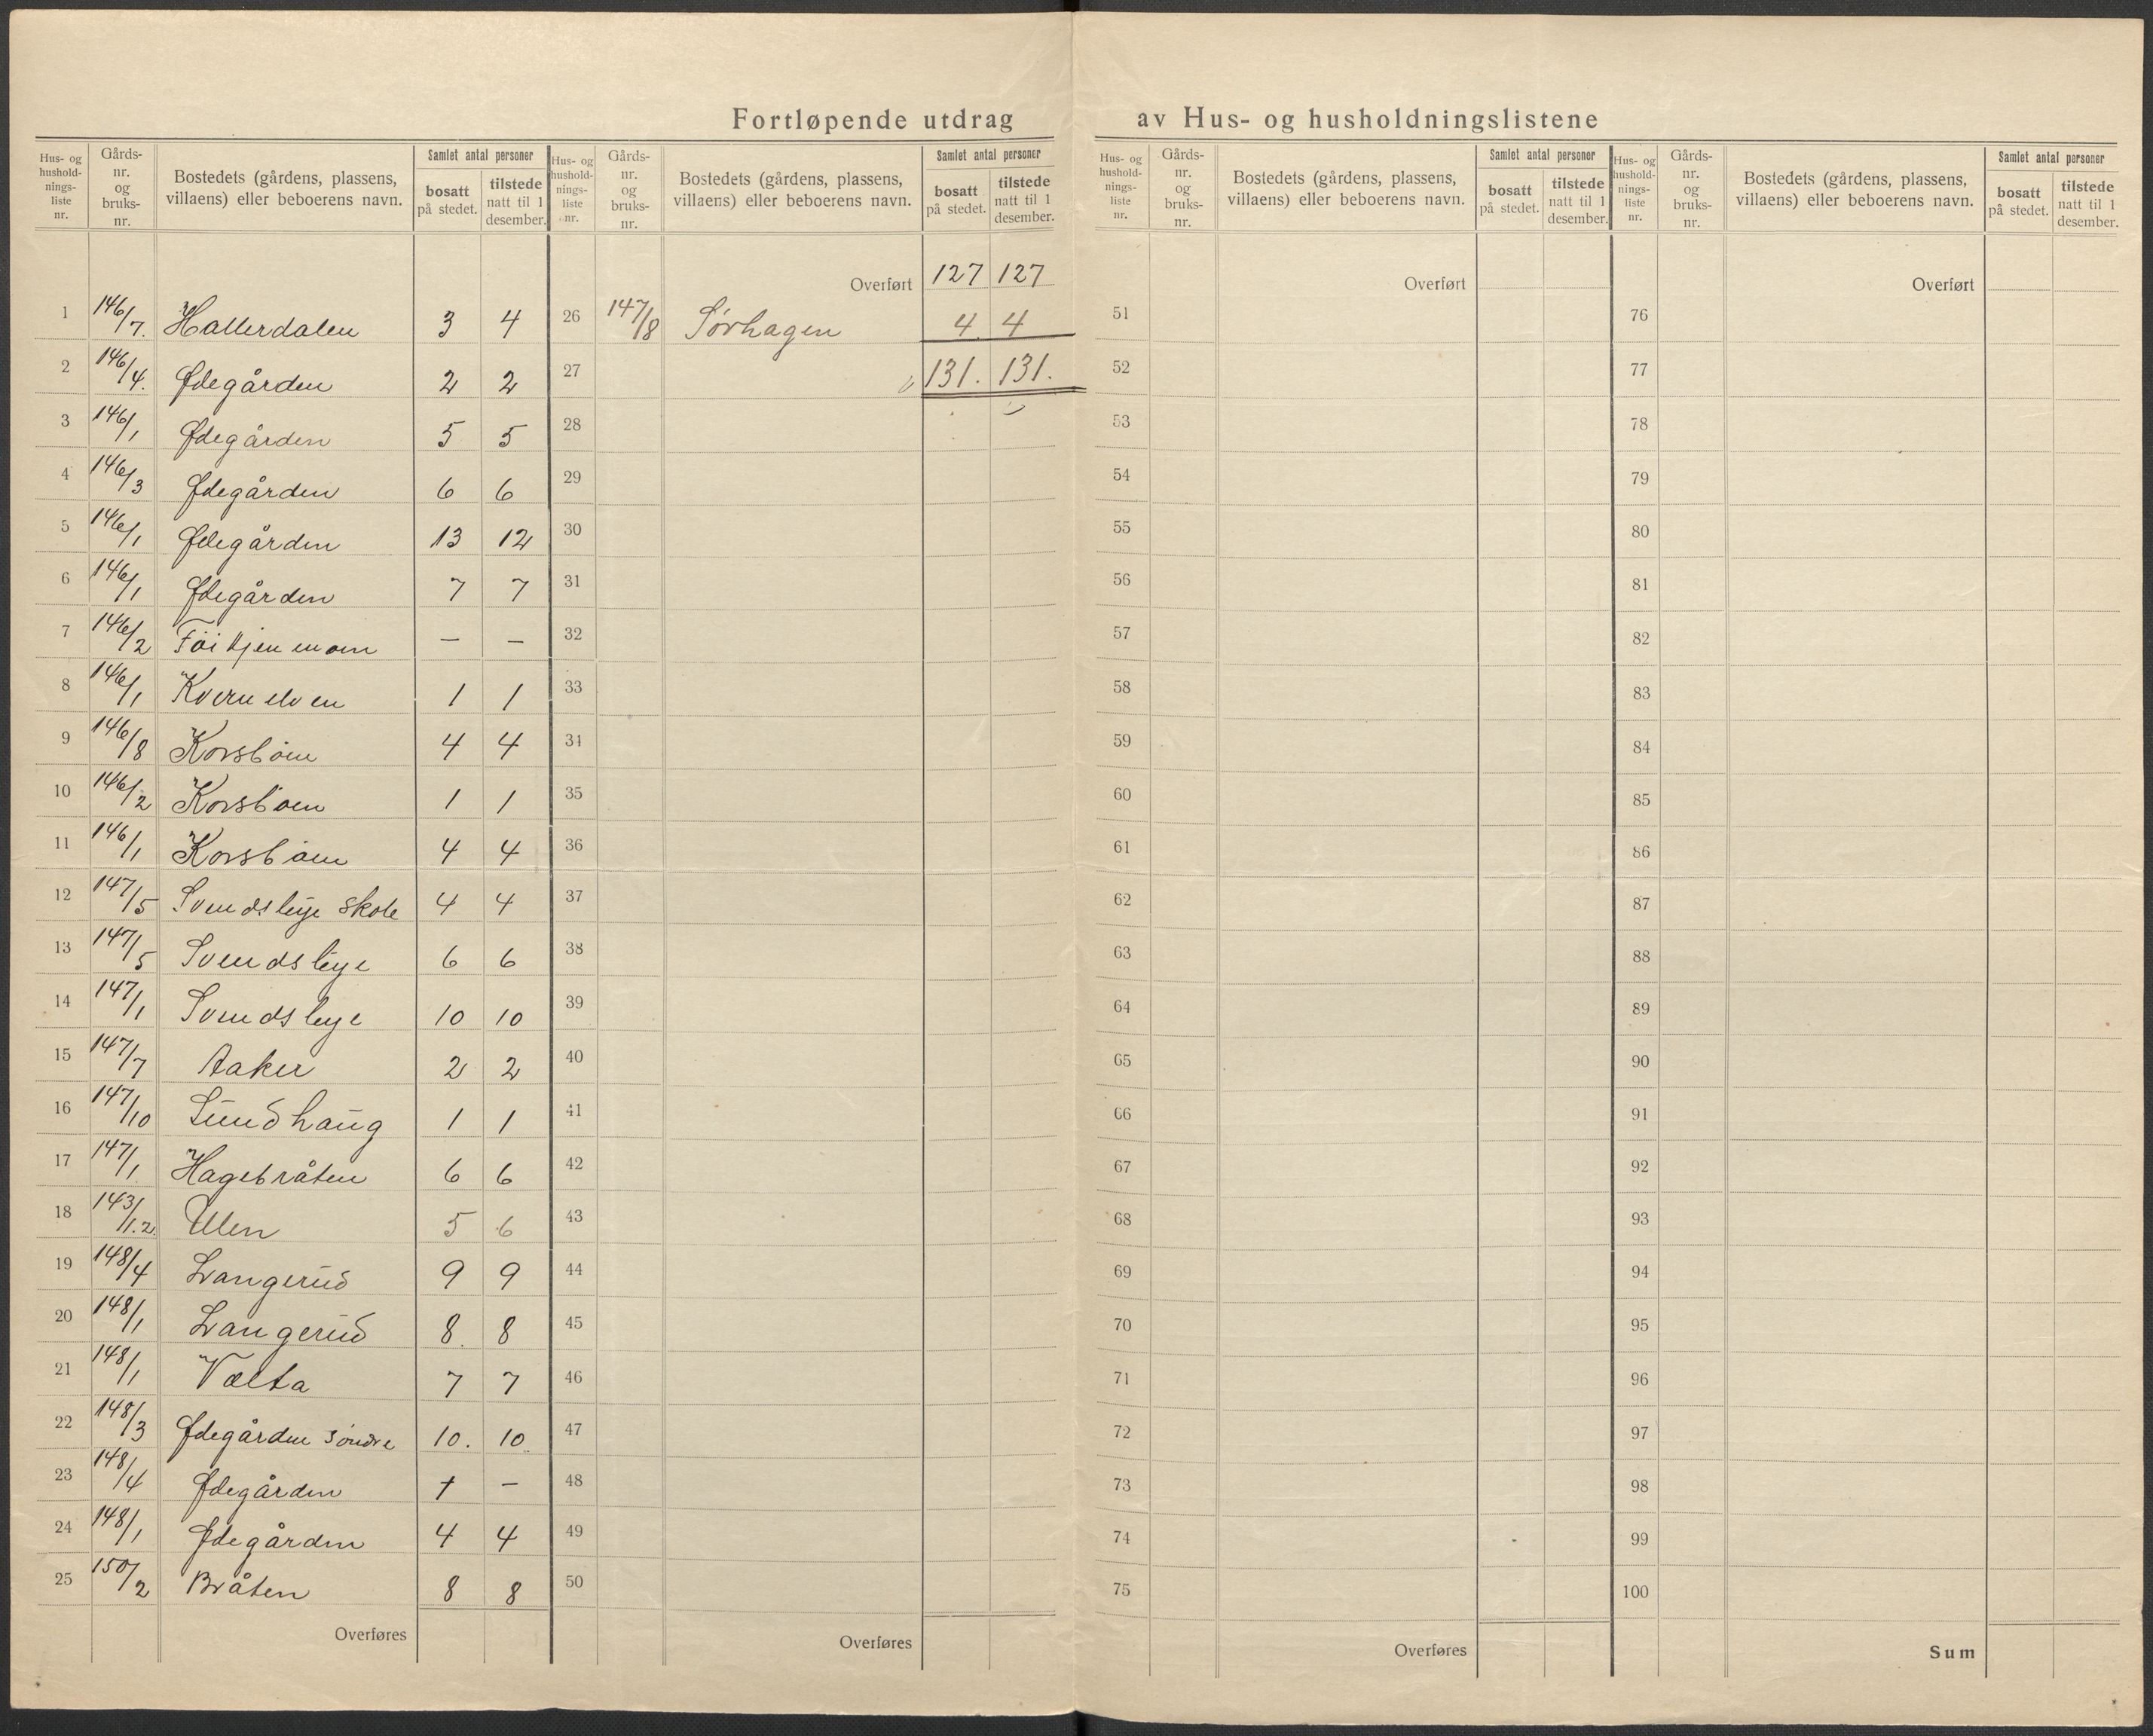 Fortløpende utdrag av Hus- og husholdningslistene
Hus- og hushold- nings- liste nr. Gårds- nr. og bruks- nr. Bostedets (gårdens, plassens, villaens) eller beboerens navn. Samlet antal personer bosatt på stedet. tilstede natt til 1 desember.
1 146/7. Hallerdalen 3 4
2 146/4. Ødegården 2 2
3 146/1 Ødegården 5 5
4 146/3 Ødegården 6 6
5 146/1 Ødegården 13 12
6 146/1 Ødegården 7 7
7 146/2 — —
8 146/1 Kvernelven 1 1
9 146/8 Korsbøen 4 4
10 146/2 Korsbøen 1 1
11 146/1 Korsbøen 4 4
12 147/5 Svendsleye skole 4 4
13 147/5 Svendsleye 6 6
14 147/1 Svendsleye 10 10
15 147/7 Aaker 2 2
16 147/10 Lundhaug 1 1
17 147/1. Hagebråten 6 6
18 143/1.2. Ulen 5 6
19 148/4 Langerud 9 9
20 148/1 Langerud 8. 8
21 148/1 Vælta 7 7
22 148/3 Ødegården søndre 10. 10.
23 148/4 Ødegården + —
24 148/1 Ødegården 4 4
25 150/2 Bråten 8 8
Overføres
Hus- og hushold- nings- liste nr. Gårds- nr. og bruks- nr. Bostedets (gårdens, plassens, villaens) eller beboerens navn. Samlet antal personer bosatt på stedet. tilstede natt til 1 desember.
Overført 127 127
26 147/8 Sørhagen 4 4
27 131. 131.
28
29
30
31
32
33
34
35
36
37
38
39
40
41
42
43
44
45
46
47
48
49
50
Overføres
Hus- og hushold- nings- liste nr. Gårds- nr. og bruks- nr. Bostedets (gårdens, plassens, villaens) eller beboerens navn. Samlet antal personer bosatt på stedet. tilstede natt til 1 desember.
Overført
51
52
53
54
55
56
57
58
59
60
61
62
63
64
65
66
67
68
69
70
71
72
73
74
75
Overføres
Hus- og hushold- nings- liste nr. Gårds- nr. og bruks- nr. Bostedets (gårdens, plassens, villaens) eller beboerens navn. Samlet antal personer bosatt på stedet. tilstede natt til 1 desember.
Overført
76
77
78
79
80
81
82
83
84
85
86
87
88
89
90
91
92
93
94
95
96
97
98
99
100
Sum